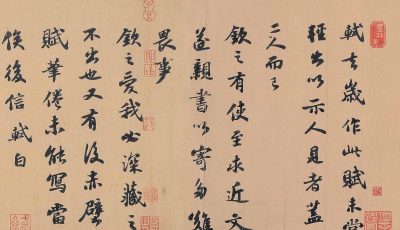 軾去歲作此賦未嘗
輕出以示人見者蓋
一二人而已
欽之有使至求近文
遂親書以寄多難
畏事
欽之愛我必深藏之
不出也又有後赤壁
賦筆倦未能寫當
俟後信軾白